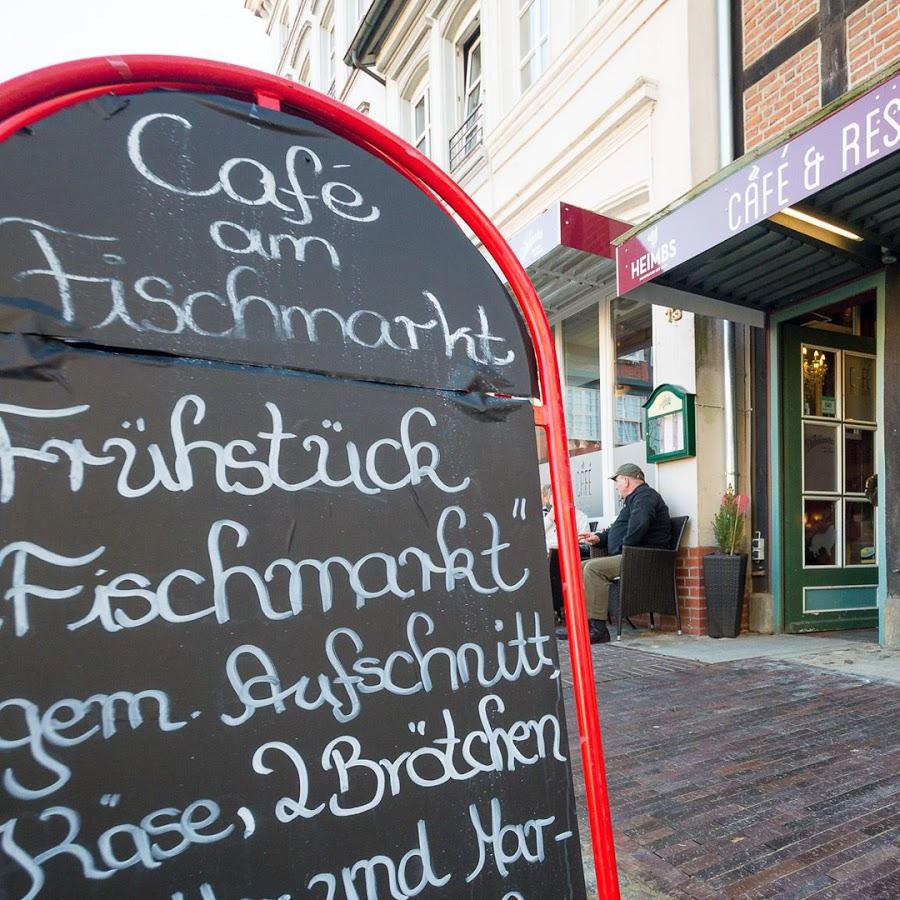 Café
am
Fischmarkt
Frühstück
„Fischmarkt"
gem. Aufschnitt,
Käse, 2 Brötchen
und Mar-
HEIMBS
CAFÉ & RES
CAFÉ